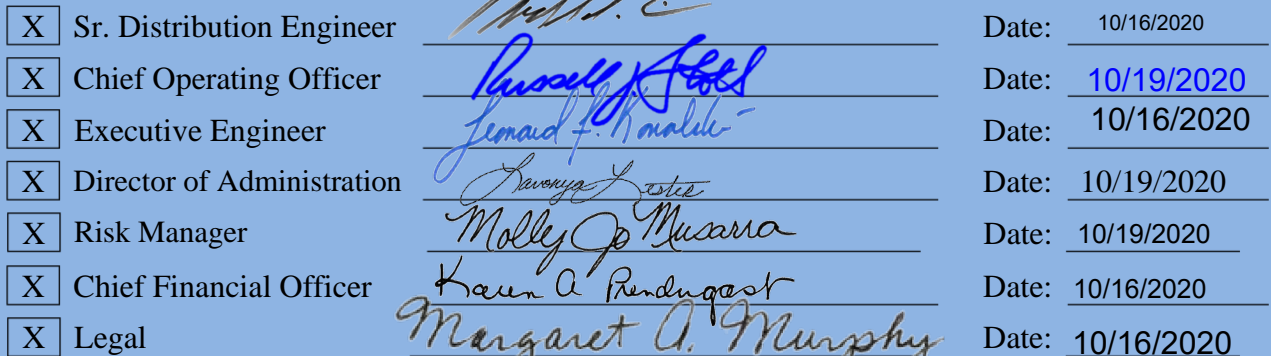 X Sr. Distribution Engineer Date: 10/16/2020
X Chief Operating Officer Russell J. Date: 10/19/2020
X Executive Engineer Leonard F. Date: 10/16/2020
X Director of Administration Lavonya Lester Date: 10/19/2020
X Risk Manager Molly Jo Musarra Date: 10/19/2020
X Chief Financial Officer Karen A Prendergast Date: 10/16/2020
X Legal Margaret A. Murphy Date: 10/16/2020